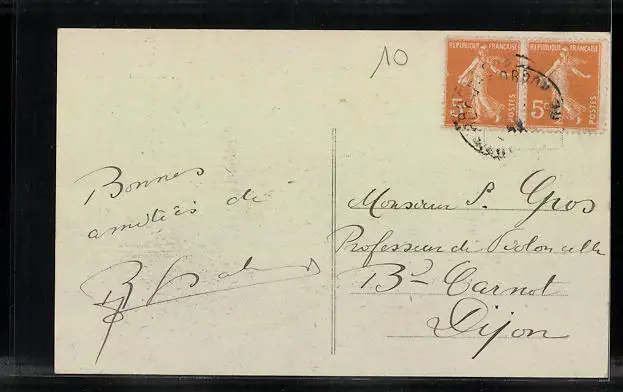 10
REPUBLIQUE FRANÇAISE REPUBLIQUE FRANÇAISE
5c 5c
POSTES POSTES
Bonnes
amitiés de
Monsieur P. Gros
Professeur de Violoncelle
Bd Carnot
Dijon